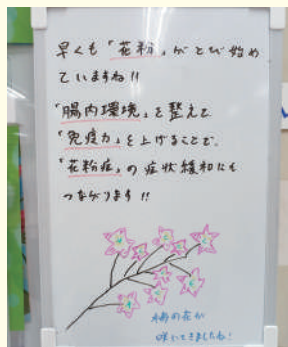 早くも「花粉」がとび始め
ていますね!!
「腸内環境」を整えて
「免疫力」を上げることで、
「花粉症」の症状緩和にも
つながります!!
梅の花が
咲いてきましたね!